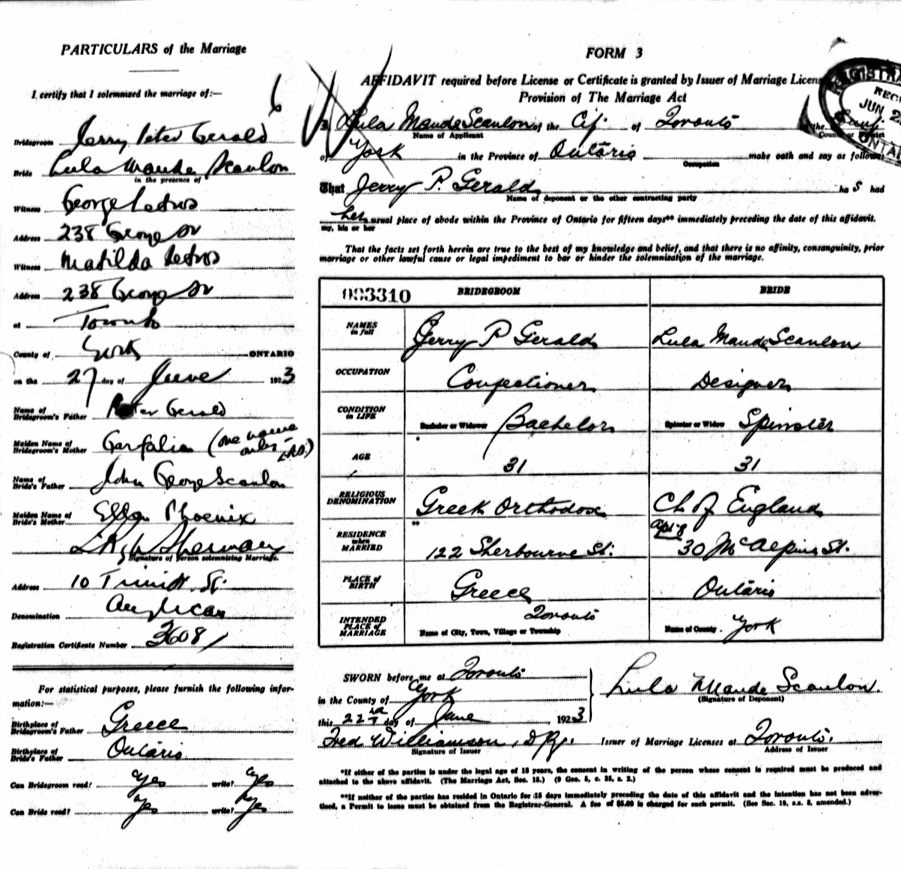 PARTICULARS of the Marriage
I certify that I solemnized the marriage of:—
6
Bridegroom Jerry Peter Gerald
Bride Lula Maude Scanlon
in the presence of
Witness George
Address 238 George St
Witness Matilda
Address 238 George St
at Toronto
County of York ONTARIO
on the 27 day of June 1923
Name of Bridegroom's Father Peter Gerald
Maiden Name of Bridegroom's Mother Garfalia (one name only
Name of Bride's Father John George Scanlon
Maiden Name of Bride's Mother Ellen Phoenix
Signature of Person solemnizing Marriage.
Address 10 Trinity St.
Denomination Anglican
Registration Certificate Number 3608
For statistical purposes, please furnish the following infor-
mation:—
Birthplace of Bridegroom's Father Greece
Birthplace of Bride's Father Ontario
Can Bridegroom read? Yes write? Yes
Can Bride read? Yes write? Yes
FORM 3
AFFIDAVIT required before License or Certificate is granted by Issuer of Marriage Licen
Provision of The Marriage Act
REGISTRA
REC
JUN. 2
ONTARI
I, Lula Maude Scanlon of the City of Toronto the
Name of Applicant
County or District
of York in the Province of Ontario make oath and say as follows
Occupation
That Jerry P. Gerald ha s had
Name of deponent or the other contracting party
her usual place of abode within the Province of Ontario for fifteen days** immediately preceding the date of this affidavit.
my, his or her
That the facts set forth herein are true to the best of my knowledge and belief, and that there is no affinity, consanguinity, prior
marriage or other lawful cause or legal impediment to bar or hinder the solemnization of the marriage.
003310 BRIDEGROOM BRIDE
NAMES in full Jerry P Gerald Lula Maude Scanlon
OCCUPATION Confectioner Designer
CONDITION in LIFE Bachelor or Widower Bachelor Spinster or Widow Spinster
AGE 31 31
RELIGIOUS DENOMINATION Greek Orthodox Ch of England
RESIDENCE when MARRIED 122 Sherbourne St. Apt 9 30 McAlpine St.
PLACE of BIRTH Greece Ontario
INTENDED PLACE of MARRIAGE Toronto York
Name of City, Town, Village or Township Name of County
SWORN before me at Toronto
in the County of York
this 22nd day of June 1923
Lula Maude Scanlon.
(Signature of Deponent)
Fred Williamson, Issuer of Marriage Licenses at Toronto.
Signature of Issuer Address of Issuer
*If either of the parties is under the legal age of 18 years, the consent in writing of the person whose consent is required must be produced and
attached to the above affidavit. (The Marriage Act, Sec. 15.) (9 Geo. 5, c. 35, s. 2.)
**If neither of the parties has resided in Ontario for 15 days immediately preceding the date of this affidavit and the intention has not been adver-
tised, a Permit to issue must be obtained from the Registrar-General. A fee of $5.00 is charged for such permit. (See Sec. 19, s.s. 3, amended.)